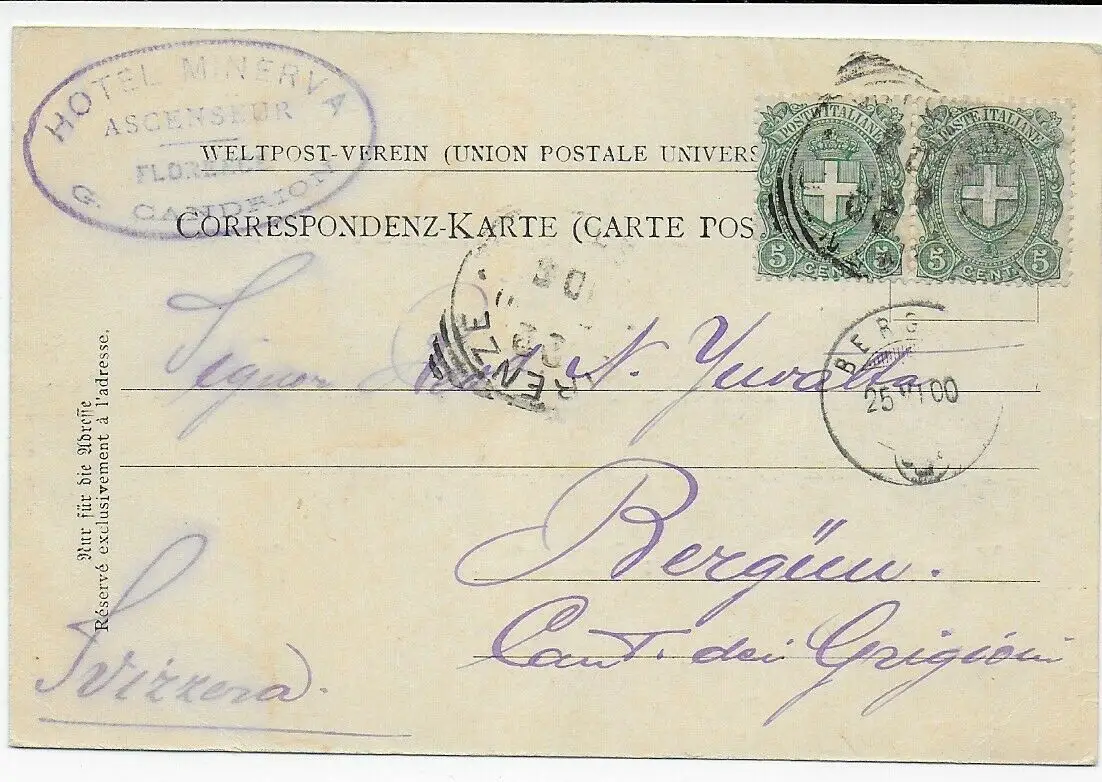 HOTEL MINERVA
ASCENSEUR
G. CANDRION
WELTPOST-VEREIN (UNION POSTALE UNIVERS
CORRESPONDENZ-KARTE (CARTE POS
POSTE ITALIANE
5 CENT. 5
POSTE ITALIANE
5 CENT. 5
RENZE
BERG
25 VI 00
Signor N. Juvalta
Bergün.
Cant. dei Grigioni
Svizzera.
Nur für die Adresse
Réservé exclusivement à l'adresse.